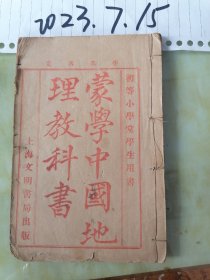 2023.7.15
文明書局
初等小學堂學生用書
蒙學中國地
理教科書
上海文明書局出版